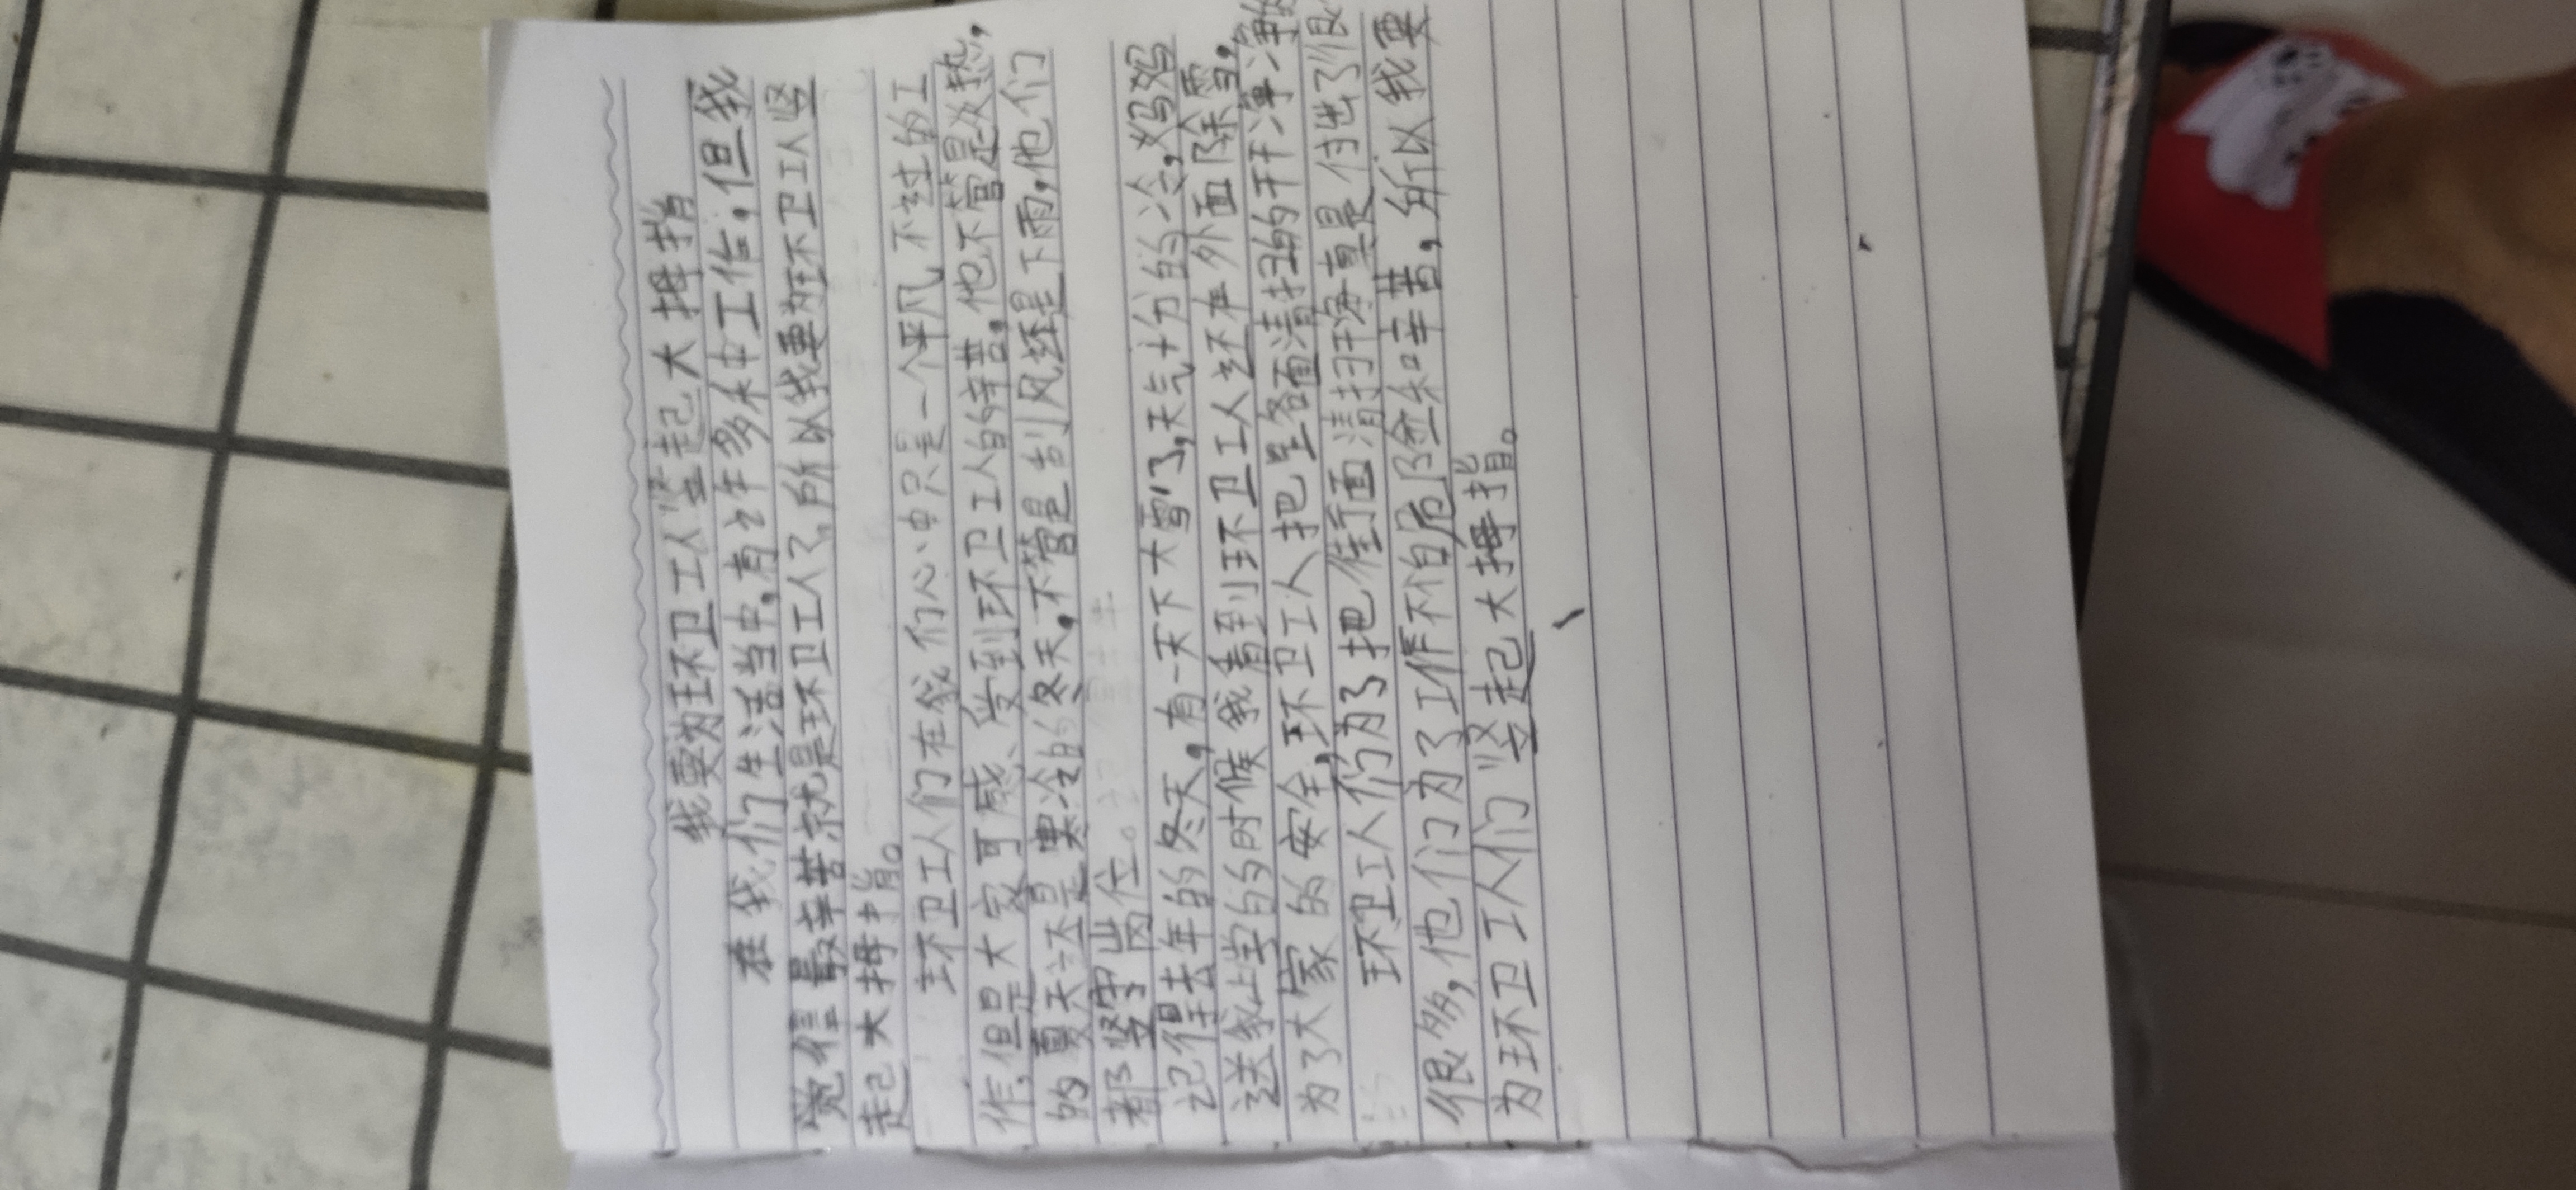 我要为环卫工人竖起大拇指
在我们生活当中,有许多未中工作,但我
觉得最辛苦就是环卫工人了,所以我要为环卫工人竖
起大拇指。
环卫工人们在我们心中只是一个平凡不过的工
作,但是大家可感受到环卫工人的辛苦,他不管是炎热,
的夏天还是寒冷的冬天,不管是刮风还是下雨,他们
都坚守岗位。
记得去年的冬天,有一天下大雪了,天气十分的冷,妈妈
送我上学的时候我看到环卫工人还在外面除雪,
为了大家的安全,环卫工人把路面清扫的干净
环卫工人们为了把街面清扫干净真是付出了很
很多,他们为了工作不怕危险和辛苦,所以我要
为环卫工人们竖起大拇指。